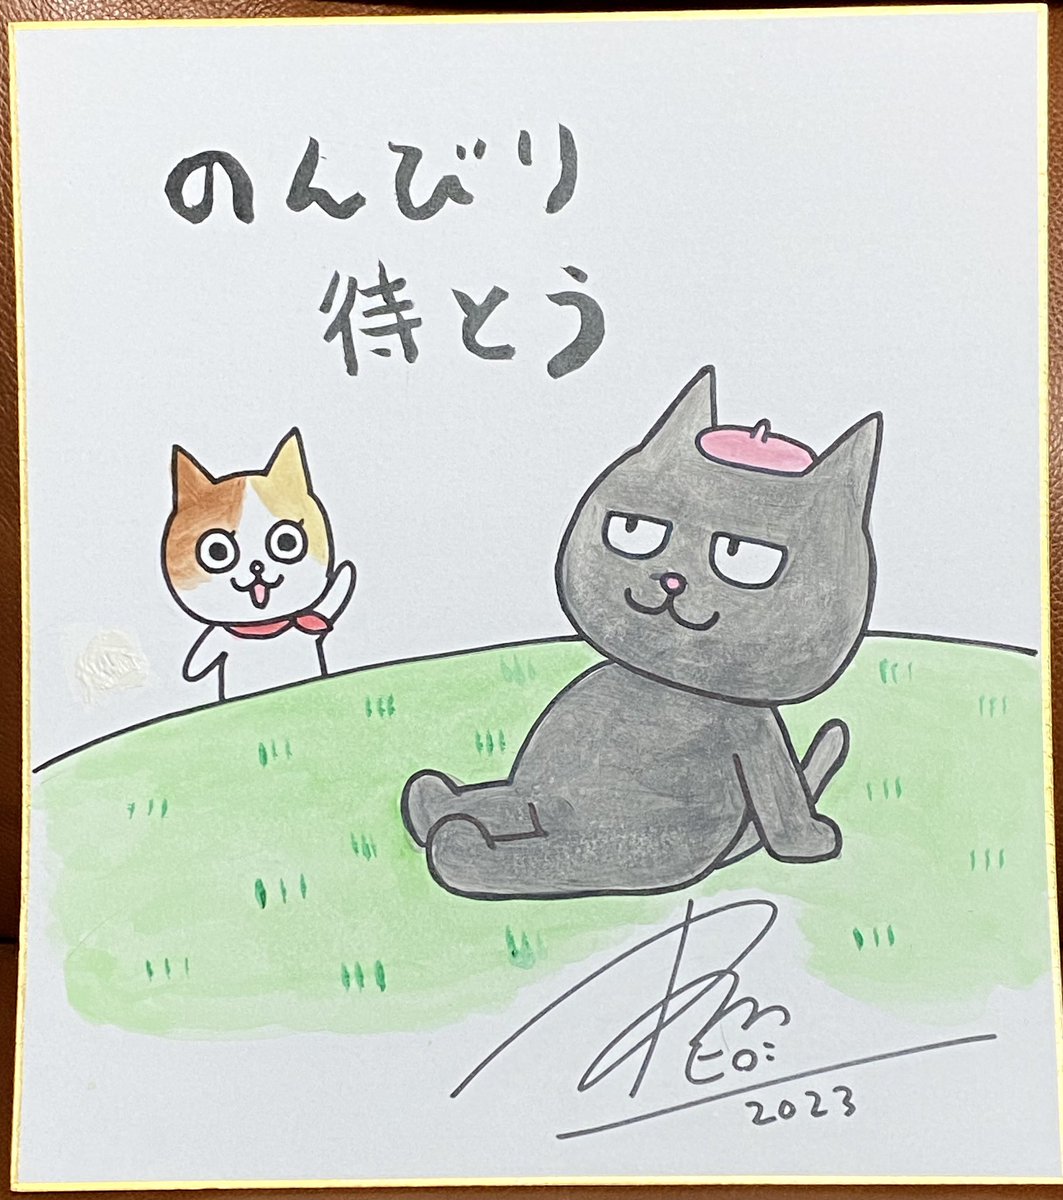 のんびり
待とう
ヒロミ
2023